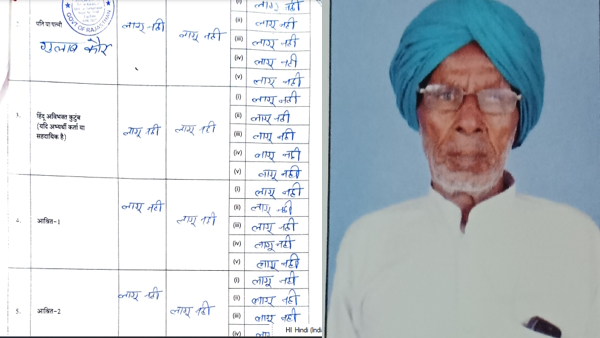 (i) लागू नही
2. पति या पत्नी लागू नही लागू नही (ii) लागू नही
GOVT OF RAJASTHAN
गुलाब कौर
(iii) लागू नही
(iv) लागू नही
(v) लागू नही
3. हिंदू अविभक्त कुटुंब
(यदि अभ्यर्थी कर्ता या
सहदायिक है)
लागू नही लागू नही
(i) लागू नही
(ii) लागू नही
(iii) लागू नही
(iv) लागू नही
(v) लागू नही
4. आश्रित-1 लागू नही लागू नही
(i) लागू नही
(ii) लागू नही
(iii) लागू नही
(iv) लागू नही
(v) लागू नही
5. आश्रित-2 लागू नही लागू नही
(i) लागू नही
(ii) लागू नही
(iii) लागू नही
(iv) लागू
HI Hindi (Indi